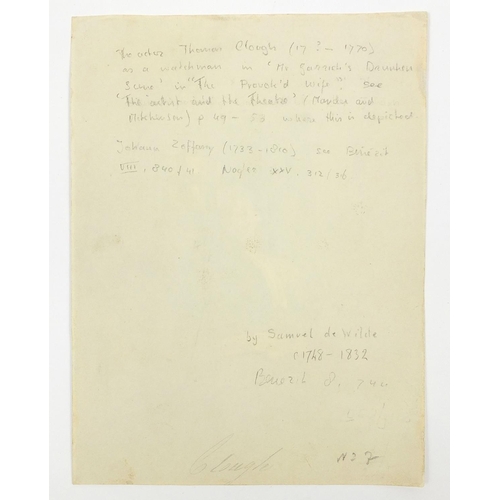 The actor Thomas Clough (17 ? - 1770)
as a watchman in 'Mr Garrick's Drunken
Scene' in "The Provok'd Wife". See
'The artist and the Theatre' (Mander and
Mitchinson) p 49 - 53 where this is depicted.
Johann Zoffany (1733-1810) see Bénézit
VIII, 840/41 Nagler XXV, 312/
by Samuel de Wilde
c1748 - 1832
Benezit 8, 744
Clough
N